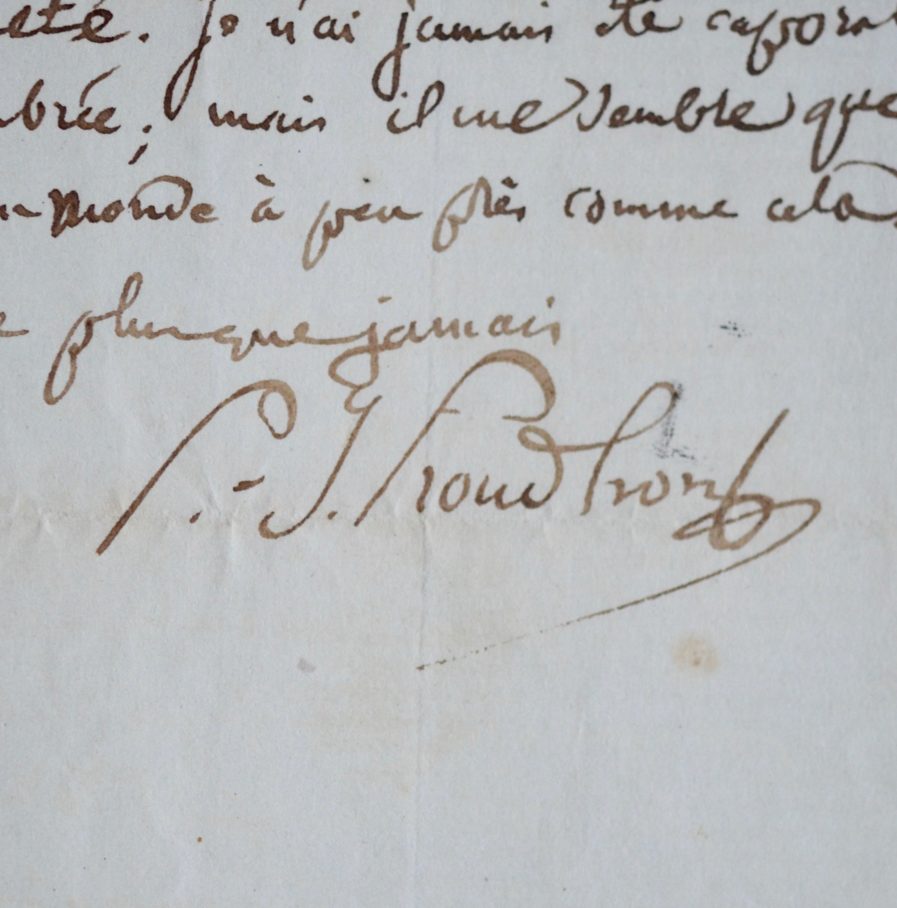 été. Je n'ai jamais été caporal
brée; mais il me semble que
monde à peu près comme cela
plus que jamais
P.-J. Proudhon